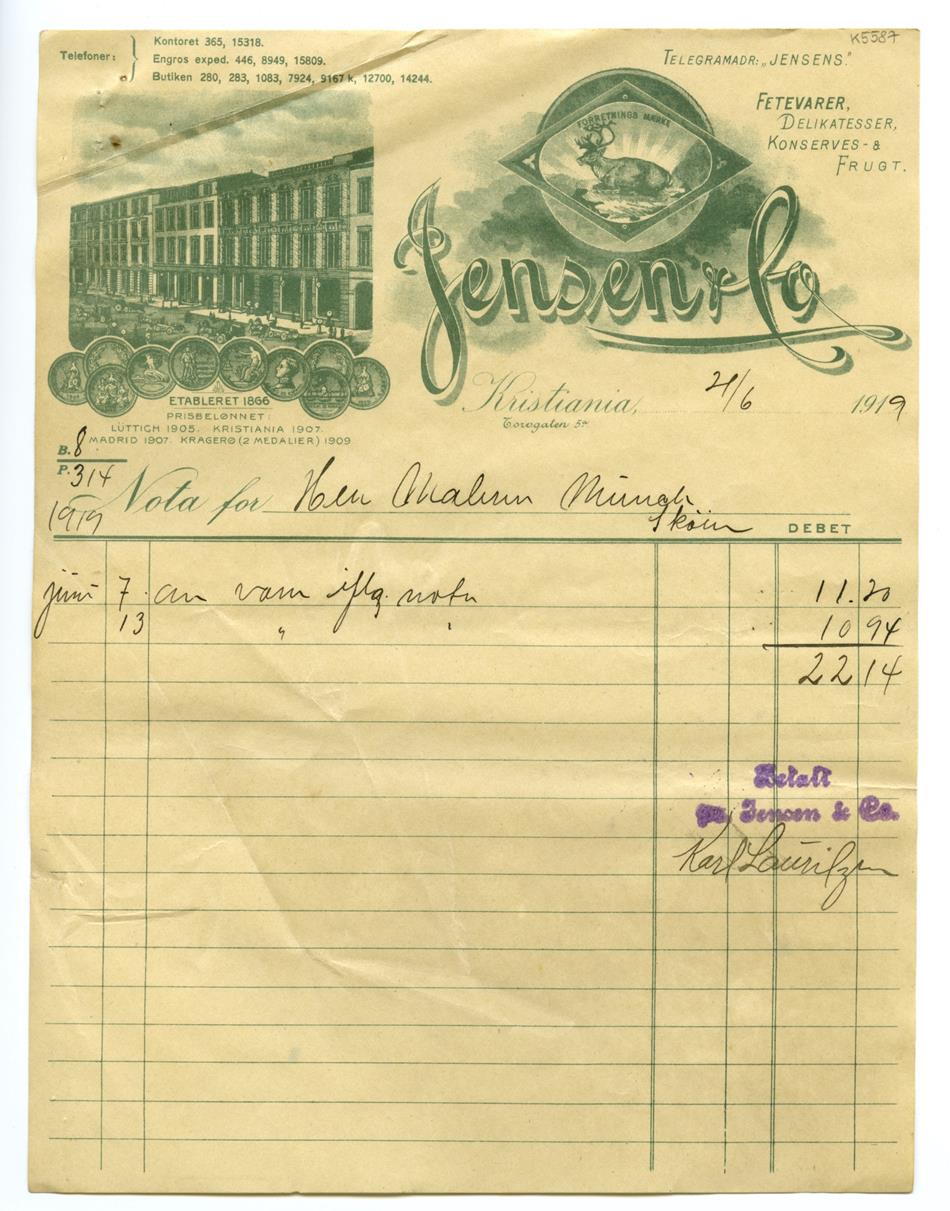 K5587
Telefoner:
Kontoret 365, 15318.
Engros exped. 446, 8949, 15809.
Butiken 280, 283, 1083, 7924, 9167 k, 12700, 14244.
TELEGRAMADR: „JENSENS."
FETEVARER,
DELIKATESSER,
KONSERVES- &
FRUGT.
FORRETNINGS MÆRKE
Jensen & Co
ETABLERET 1866
PRISBELØNNET:
LÜTTICH 1905. KRISTIANIA 1907.
MADRID 1907. KRAGERØ (2 MEDALIER) 1909
Kristiania, 21/6 1919
Torvgaten 5
B. 8
P. 314
1919
Nota for Herr Maleren Munch
Skøien
DEBET
juni 7. an vare iflg. nota 11.20
13 " " 10 94
22 14
Betalt
pr. Jensen & Co.
Karl Lauritzen